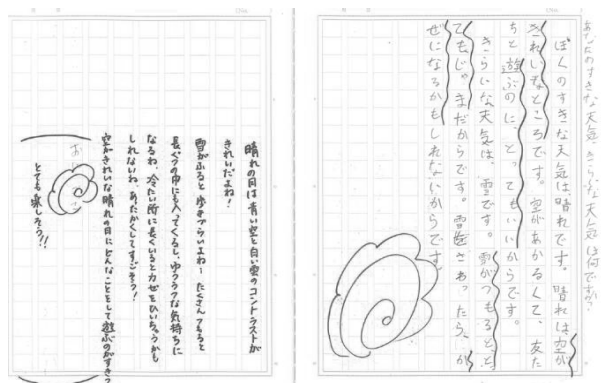 あなたのすきな天気、きらいな天気は何ですか?
ぼくのすきな天気は、晴れです。晴れは、空が
きれいなところです。空があかるくて、友た
ちと遊ぶのに、とってもいいからです。
きらいな天気は、雪です。雪がつもると、と
てもじゃまだからです。雪をさわったら、か
ぜになるかもしれないからです。
晴れの日は青い空と白い雲のコントラストが
きれいだよね!
雪がふると歩きづらいよね… たくさんつもると
長ぐつの中にも入ってくるし、ゆううつな気持ちに
なるね。冷たい所に長くいるとカゼをひいちゃうかも
しれないね。あたたかくしてすごそう!
空がきれいな晴れの日にどんなことをして遊ぶのがすき?
とても楽しそう!!